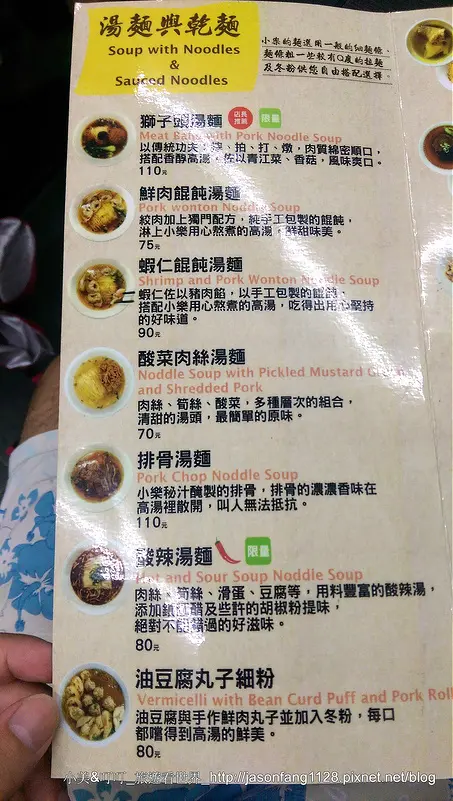 湯麵與乾麵
Soup with Noodles
&
Sauced Noodles
小樂的麵選用一般的細麵條、
麵條粗一些較有Q度的拉麵
及冬粉供您自由搭配選擇。
獅子頭湯麵 店長推薦 限量
Meat Balls with Pork Noodle Soup
以傳統功夫，拍、打、燉，肉質綿密順口，
搭配香醇高湯，佐以青江菜、香菇，風味爽口。
110元
鮮肉餛飩湯麵
Pork wonton Noddle Soup
絞肉加上獨門配方，純手工包製的餛飩，
淋上小樂用心熬煮的高湯，鮮甜味美。
75元
蝦仁餛飩湯麵
Shrimp and Pork Wonton Noddle Soup
蝦仁佐以豬肉餡，以手工包製的餛飩、
搭配小樂用心熬煮的高湯，吃得出用心堅持
的好味道。
90元
酸菜肉絲湯麵
Noddle Soup with Pickled Mustard
and Shredded Pork
肉絲、筍絲、酸菜，多種層次的組合，
清甜的湯頭，最簡單的原味。
70元
排骨湯麵
Pork Chop Noddle Soup
小樂秘汁醃製的排骨，排骨的濃濃香味在
高湯裡散開，叫人無法抵抗。
110元
酸辣湯麵 限量
Hot and Sour Soup Noddle Soup
肉絲、筍絲、滑蛋、豆腐等，用料豐富的酸辣湯，
添加鎮江醋及些許的胡椒粉提味，
絕對不能錯過的好滋味。
80元
油豆腐丸子細粉
Vermicelli with Bean Curd Puff and Pork Roll
油豆腐與手作鮮肉丸子並加入冬粉，每口
都嚐得到高湯的鮮美。
80元
小美&叮叮_旅遊看世界_http://jasonfang1128.pixnet.net/blog